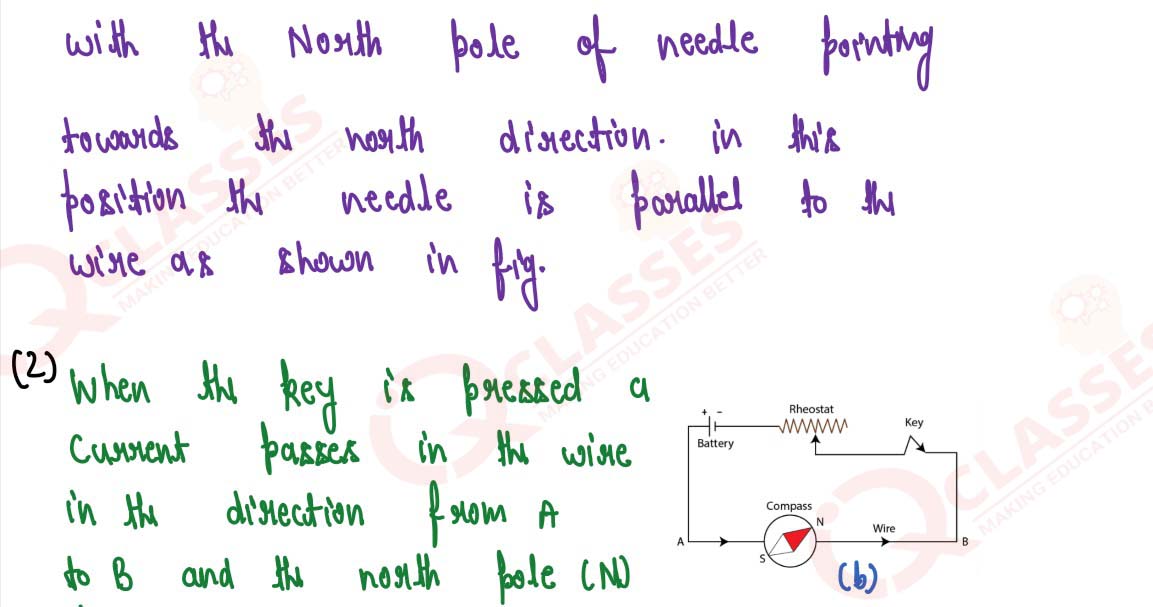 with the North pole of needle pointing
towards the north direction. in this
position the needle is parallel to the
wire as shown in fig.
(2) When the key is pressed a
Current passes in the wire
in the direction from A
to B and the north pole (N)
+ -
Battery
Rheostat
Key
Compass
N
S
A
Wire
B
(b)
CLASSES
MAKING EDUCATION BETTER
CLASSES
MAKING EDUCATION BETTER
CLASSES
MAKING EDUCATION B